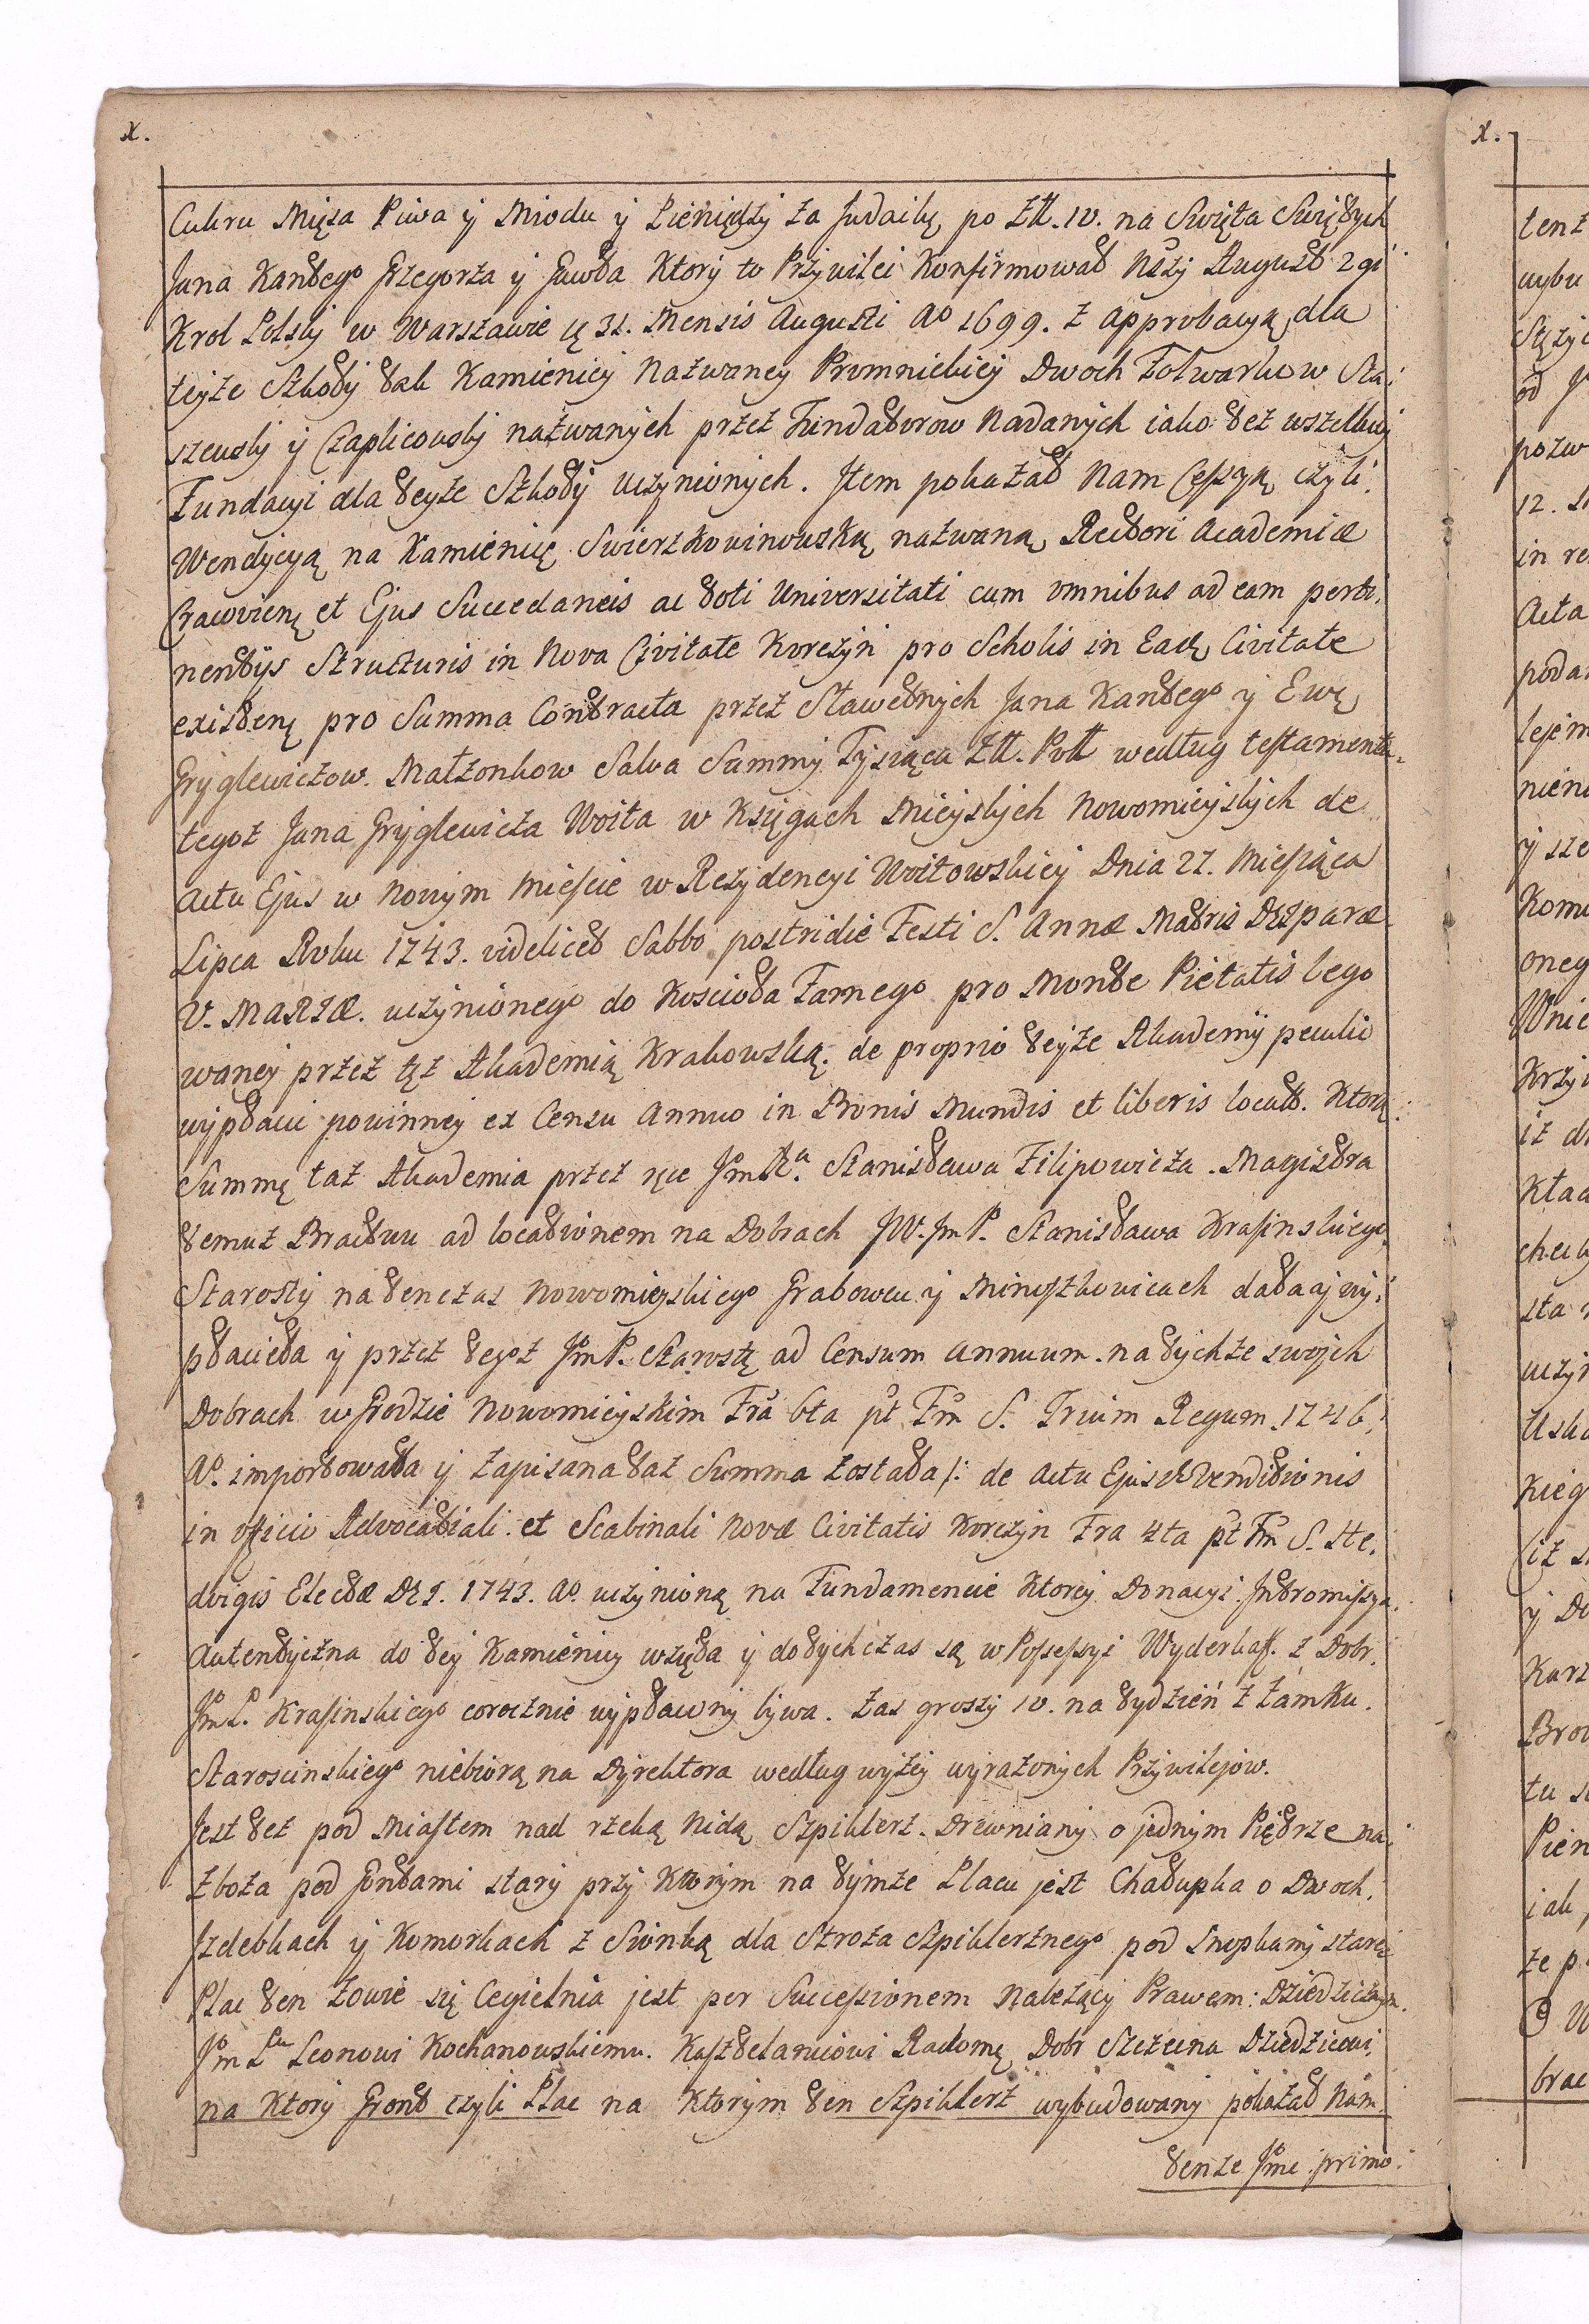 x.
Cukru Mięsa Piwa ÿ Miodu ÿ Pieniędzÿ za Judaikę po Złł. 10. na Swięta Swiętÿch
Jana Kantego Grzegorza ÿ Gawła Ktorÿ to Przÿwilei Konfirmował Nszÿ August 2gi
Krol Polskÿ w Warszawie 31. Mensis Augusti Ao 1699. z approbacÿą dla
teÿże Szkołÿ tak Kamienicÿ Nazwaneÿ Promnickieÿ Dwoch Folwarkow Sta:
szewskÿ ÿ Czaplicowskÿ nazwanÿch przez Fundatorow Nadanÿch iako tez wszelkieÿ
Fundacÿi dla teÿże Szkołÿ uczÿnionÿch. Jtem pokazał Nam Cessÿą, czÿli
Wendÿcÿą na Kamienicę Swierzkowinowską nazwaną, Rectori Academiæ
Cracovienę et Ejus Succedaneis ac toti Universitati cum omnibus ad eam perti,
nentÿs Structuris in Nova Civitate Korczÿn pro Scholis in Eadę Civitate
existenę pro Summa Contracta przez Sławetnÿch Jana Kantego ÿ Ewę
Grÿglewiczow Małżonkow Salva Summÿ Tÿsiąca Złł. Poll według testamentu
tegoz Jana Grÿglewicza Woita w Księgach Mieÿskÿch Nowomieÿskÿch de
Actu Ejus w Nowÿm Mieście w Rezÿdencÿi Woitowskieÿ Dnia 27. Miesiąca
Lipca Roku 1743. videlicet Sabbo postridie Festi S. Annæ Matris Deiparæ
V. MARIÆ. uczÿnionego do Kościoła Farnego pro Monte Pietatis lego
waneÿ przez tęz Akademią Krakowską. de proprio teÿże Akademÿi peculio
wÿpłacic powinneÿ ex Censu Annuo in Bonis Mundis et liberis locato. Ktorą
Summę taz Akademia przez ręce JmXa. Stanisława Filipowicza. Magistra
temuz Bractwu ad locationem na Dobrach JW. JmP. Stanisława Krasinskiego
Starostÿ na tenczas Nowomieÿskiego Grabowcu ÿ Minuszkowicach dała aj wÿ:
płaciła ÿ przez tegoz JmP. Starostę ad Censum Annuum na tÿchże swoich
Dobrach w Grodzie Nowomieÿskim Fra 6ta pt Fm S. Trium Regum 1746
Ao. importowała ÿ zapisana taz Summa została /: de Actu Ejusd Venditionis
in officio Advocatiali et Scabinali Novæ Civitatis Korczÿn Fra 4ta pt Fm S. He,
dvigis Electæ DEI. 1743. Ao. uczÿnioną na Fundamencie Ktoreÿ Donacÿi Intromissÿa
Autentÿczna do teÿ Kamienicÿ wzięta ÿ dotÿchczas są w Possessÿi Wÿderkaff. z Dobr
JmP. Krasinskiego corocznie wÿpłacanÿ bÿwa. Zas groszÿ 10. na tÿdzień z Zamku
Starościnskiego niebiorą na Dÿrektora według wÿżeÿ wÿrażonÿch Przÿwilejow.
Jest tez pod Miastem nad rzeką Nidą Szpiklerz Drewnianÿ o jednÿm Piętrze na
Zboża pod Gontami starÿ przÿ Ktorÿm na tÿmże Placu jest Chałupka o Dwoch
Jzdebkach ÿ Komorkach z Sionką dla Stroża Szpiklerznego pod Snopkamÿ stara
Plac ten Zowie się Cegielnia jest per Successionem Należącÿ Prawem Dziedzicznÿm
Jm Pu Leonowi Kochanowskiemu Kasztelanicowi Radomę Dobr Szczecina Dziedzicowi
na Ktorÿ Gront czÿli Plac na Ktorÿm ten Szpiklerz wÿbudowanÿ pokazał Nam
tenże Jmc primo
x.